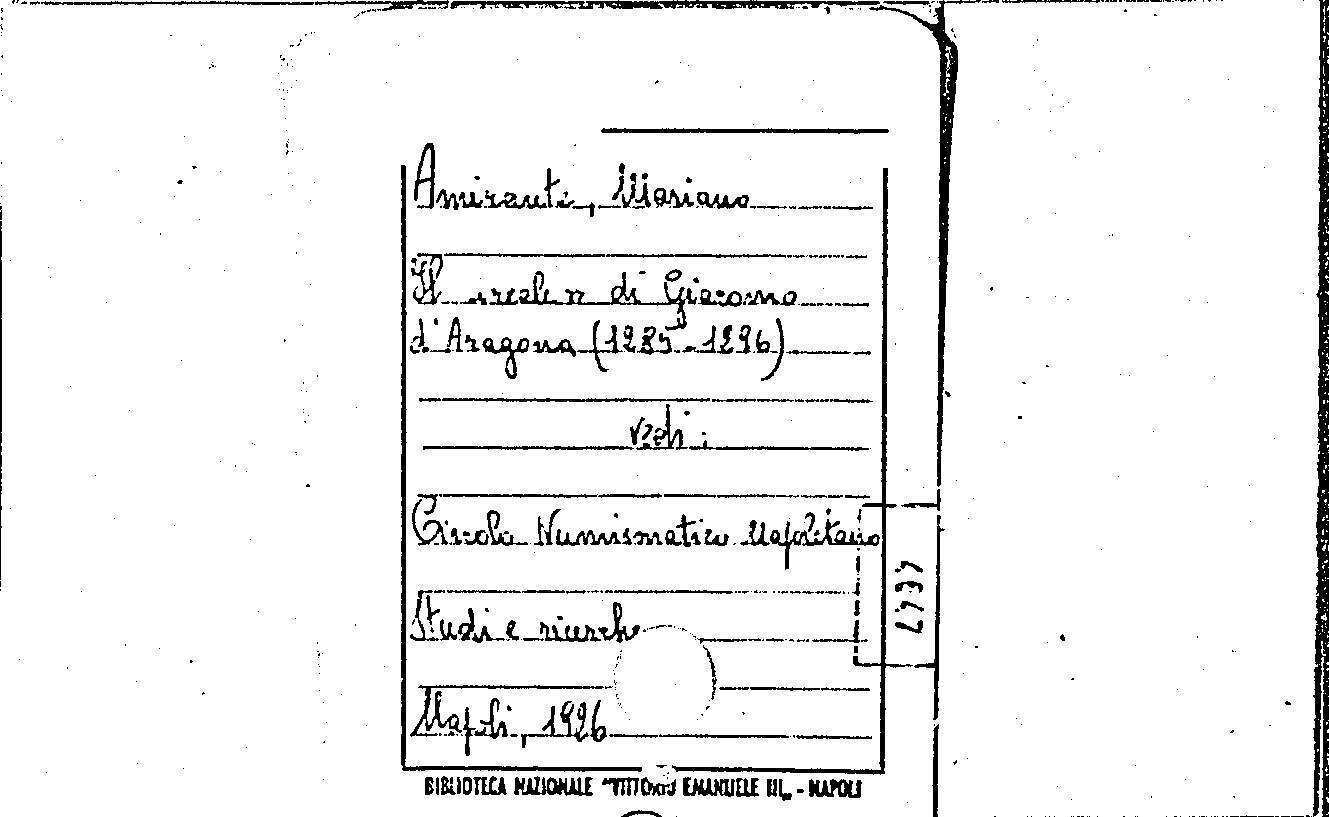 Amirante, Mariano
Il di Giacomo
d'Aragona (1285-1296)
vedi:
Circolo Numismatico Napoletano
Studi e ricerche
Napoli, 1926
BIBLIOTECA NAZIONALE "VITTORIO EMANUELE III„ - NAPOLI